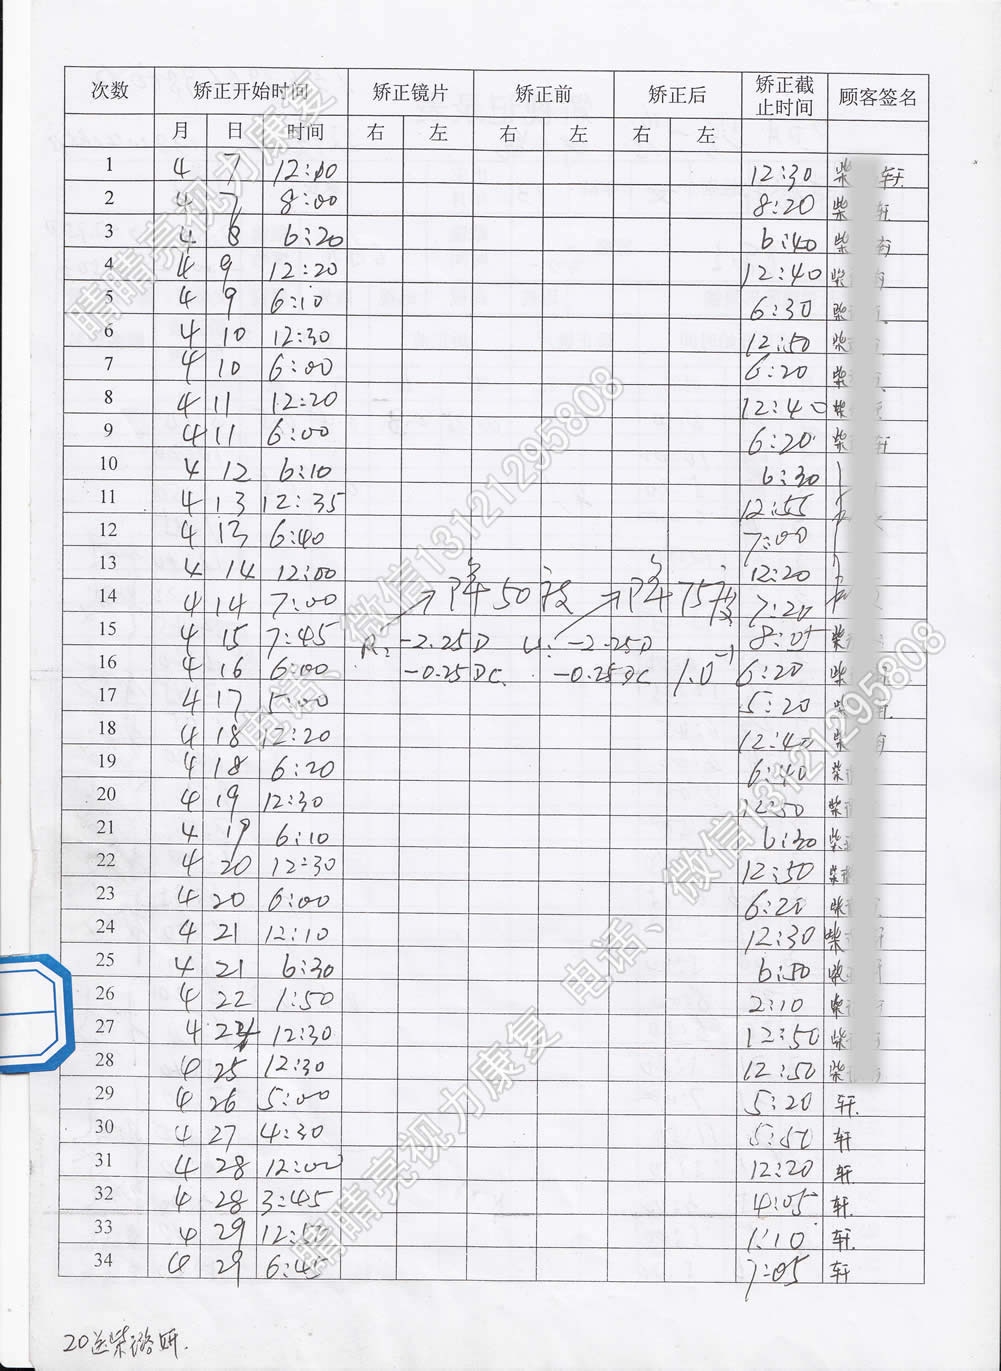 次数 矫正开始时间 矫正镜片 矫正前 矫正后 矫正截止时间 顾客签名
月 日 时间 右 左 右 左 右 左
1 4 7 12:00 12:30 柴 轩
2 4 7 8:00 8:20 柴 轩
3 4 8 6:20 6:40 柴
4 4 9 12:20 12:40 柴
5 4 9 6:10 6:30 柴
6 4 10 12:30 12:50 柴
7 4 10 6:00 6:20 柴
8 4 11 12:20 12:40 柴
9 4 11 6:00 6:20 柴
10 4 12 6:10 6:30
11 4 13 12:35 12:55
12 4 13 6:40 7:00
13 4 14 12:00 12:20
14 4 14 7:00 降50度 降75度 7:20
15 4 15 7:45 R: -2.25D L: -2.25D 8:05 柴
16 4 16 6:00 -0.25DC -0.25DC 1.0⁻¹ 6:20 柴
17 4 17 5:00 5:20 柴
18 4 18 12:20 12:40 柴
19 4 18 6:20 6:40 柴
20 4 19 12:30 12:50 柴
21 4 19 6:10 6:30 柴
22 4 20 12:30 12:50 柴
23 4 20 6:00 6:20 柴
24 4 21 12:10 12:30 柴
25 4 21 6:30 6:50 柴
26 4 22 1:50 2:10 柴
27 4 24 12:30 12:50 柴
28 4 25 12:30 12:50 柴
29 4 26 5:00 5:20 轩
30 4 27 4:30 5:50 轩
31 4 28 12:00 12:20 轩
32 4 28 3:45 4:05 轩
33 4 29 12:50 1:10 轩
34 4 29 6:45 7:05 轩
20送柴璐妍.
晴晴亮视力康复 电话、微信13121295808
晴晴亮视力康复 电话、微信13121295808